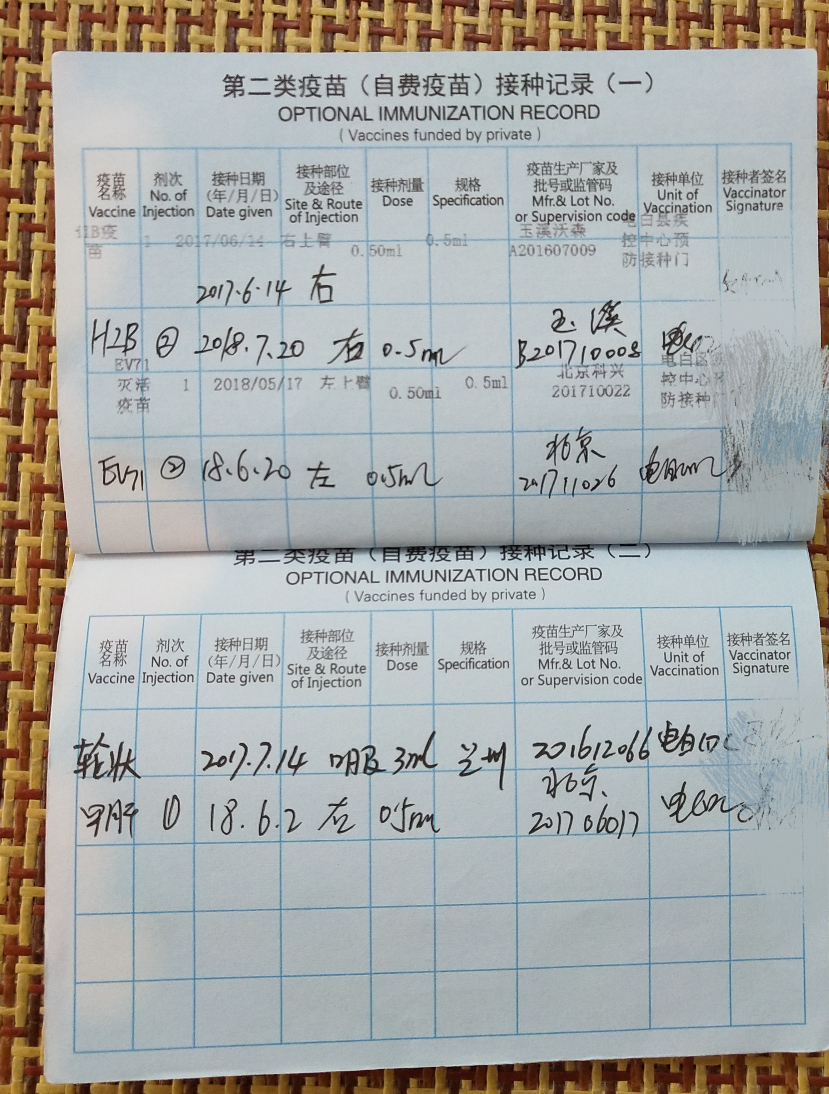 第二类疫苗（自费疫苗）接种记录（一）
OPTIONAL IMMUNIZATION RECORD
( Vaccines funded by private )
疫苗名称 Vaccine
剂次 No. of Injection
接种日期 （年/月/日） Date given
接种部位及途径 Site & Route of Injection
接种剂量 Dose
规格 Specification
疫苗生产厂家及批号或监管码 Mfr.& Lot No. or Supervision code
接种单位 Unit of Vaccination
接种者签名 Vaccinator Signature
HIB疫苗 1 2017/06/14 右上臂 0.50ml 0.5ml 玉溪沃森 A201607009 电白县疾控中心预防接种门
2017.6.14 右
HZB ② 2018.7.20 右 0.5ml 玉溪 B201710008
EV71灭活疫苗 1 2018/05/17 左上臂 0.50ml 0.5ml 北京科兴 201710022 电白区 控中心 防接种门
EV71 ② 18.6.20 左 0.5ml 北京 201711026 电白
第二类疫苗（自费疫苗）接种记录（二）
OPTIONAL IMMUNIZATION RECORD
( Vaccines funded by private )
疫苗名称 Vaccine
剂次 No. of Injection
接种日期 （年/月/日） Date given
接种部位及途径 Site & Route of Injection
接种剂量 Dose
规格 Specification
疫苗生产厂家及批号或监管码 Mfr.& Lot No. or Supervision code
接种单位 Unit of Vaccination
接种者签名 Vaccinator Signature
轮状 2017.7.14 口服 3ml 兰州 201612066 电白
甲肝 ① 18.6.2 左 0.5ml 北京 201706017